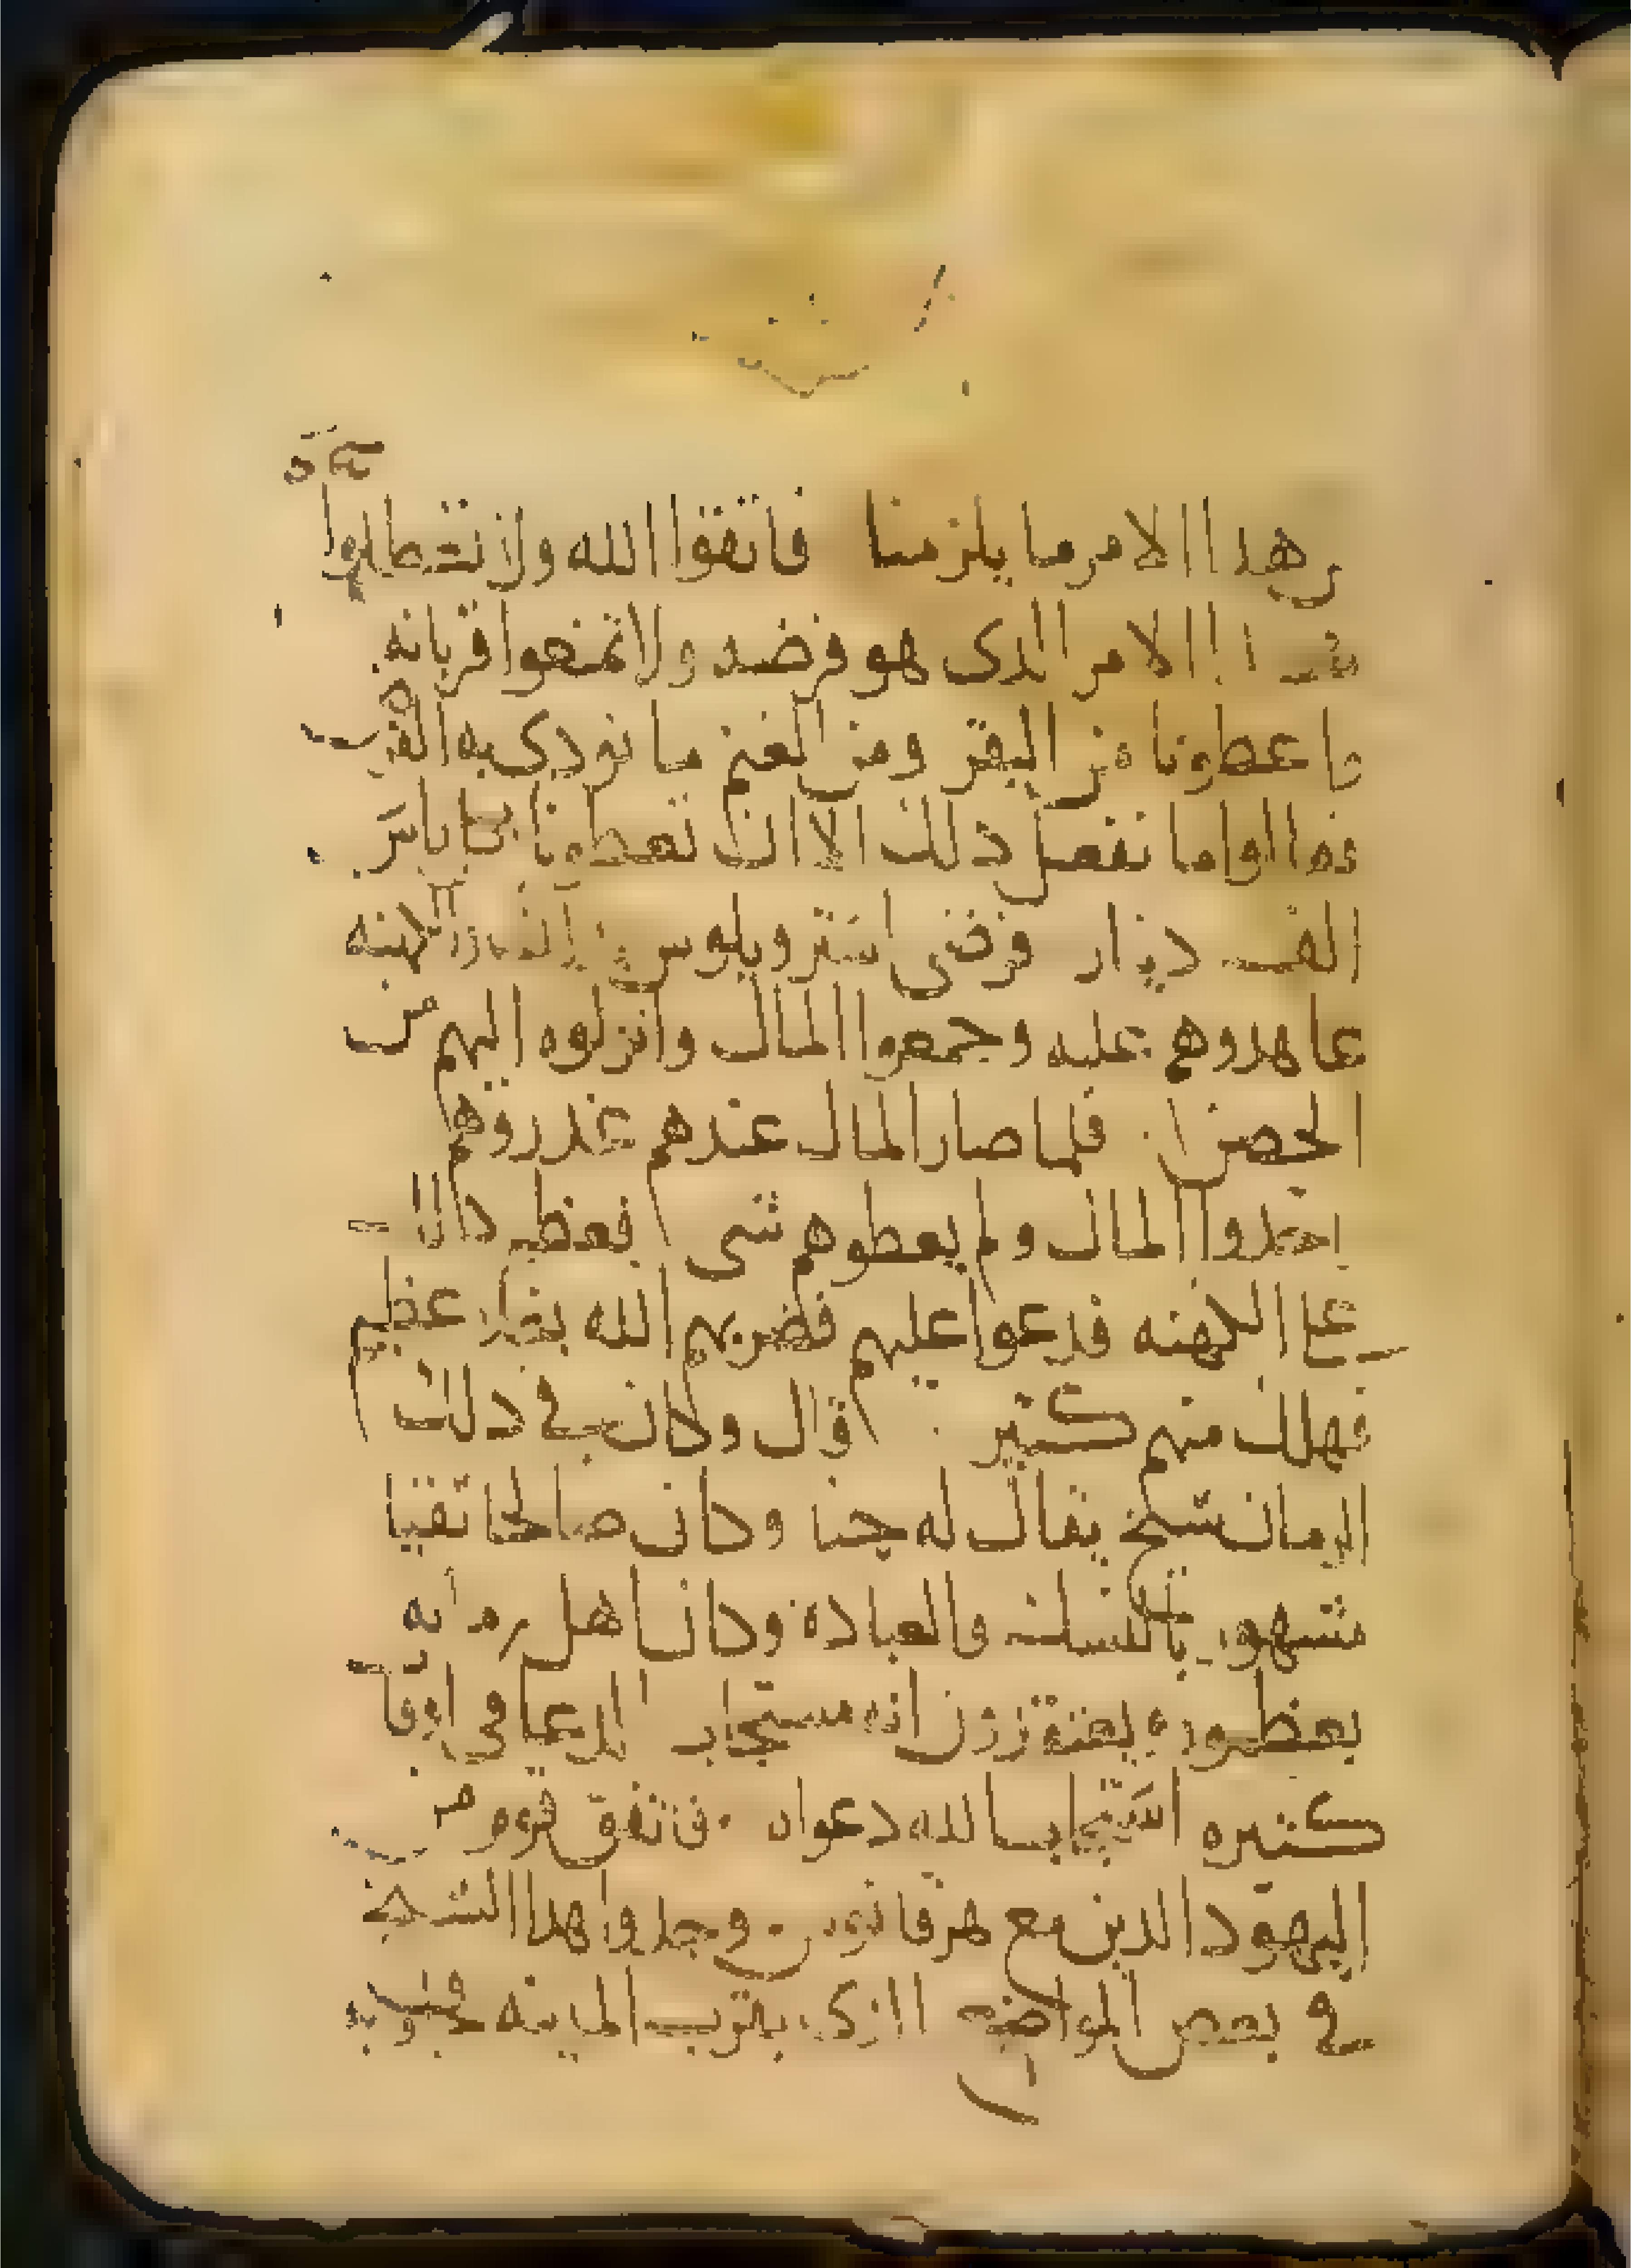 وهدا الامر ما يلزمنا فاتقوا الله ولا تتطلوا
هدا الامر الدى هو فرضه ولا تمنعوا قربانه
واعطونا من البقر ومن الغنم ما نودي به القر
فقالوا ما نفعل دلك الا ان تعطونا
الف دينار فرضى استروبلوس الكهنه
عاهدوهم عليه وجمعوا المال وانزلوه اليهم من
الحصن فلما صار المال عندهم غدروهم
اخدوا المال ولم يعطوهم شى فعظم دلك
على الكهنه فدعوا عليهم فضربهم الله عظيم
فهلك منهم كتير قال وكان في دلك
الزمان شيخ يقال له حنا وكان صالحا تقيا
مشهور بالنسك والعباده وكان اهل زمانه
يعظموه ويعتقدون انه مستجاب الدعا في اوقات
كتيره استجاب الله دعواه فاتفق قوم من
اليهود الدين مع هرقانوس وجدوا هدا الشيخ
في بعض المواضع بقرب المدينه